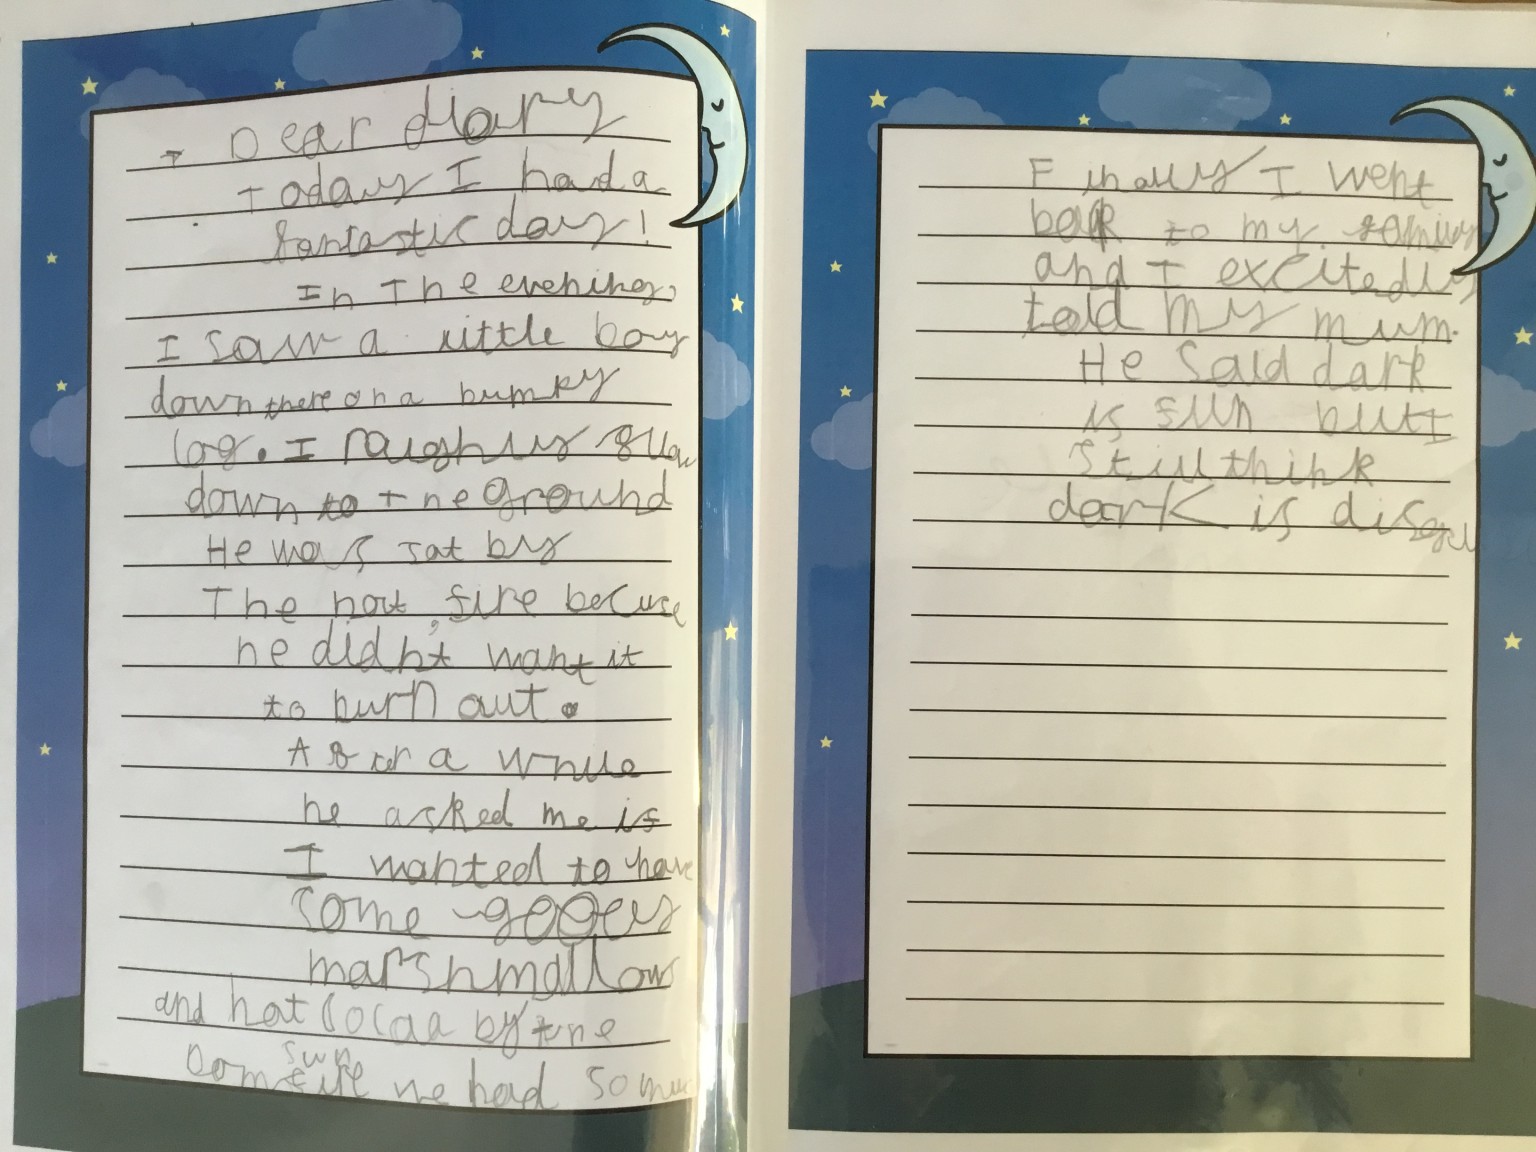 Dear diary
Today I had a
fantastic day!
In The evening,
I saw a little boy
down there on a bumpy
log. I roughly
down to the ground
He was sat by
The hot fire becuse
he didn't want it
to burn out.
After a while
he asked me if
I wanted to have
some gooey
marshmallows
and hot cocaa by the
fun
we had so much
Finally I went
back to my family
and I excitedly
told my mum.
He said dark
is fun but I
Still think
dark is disgu